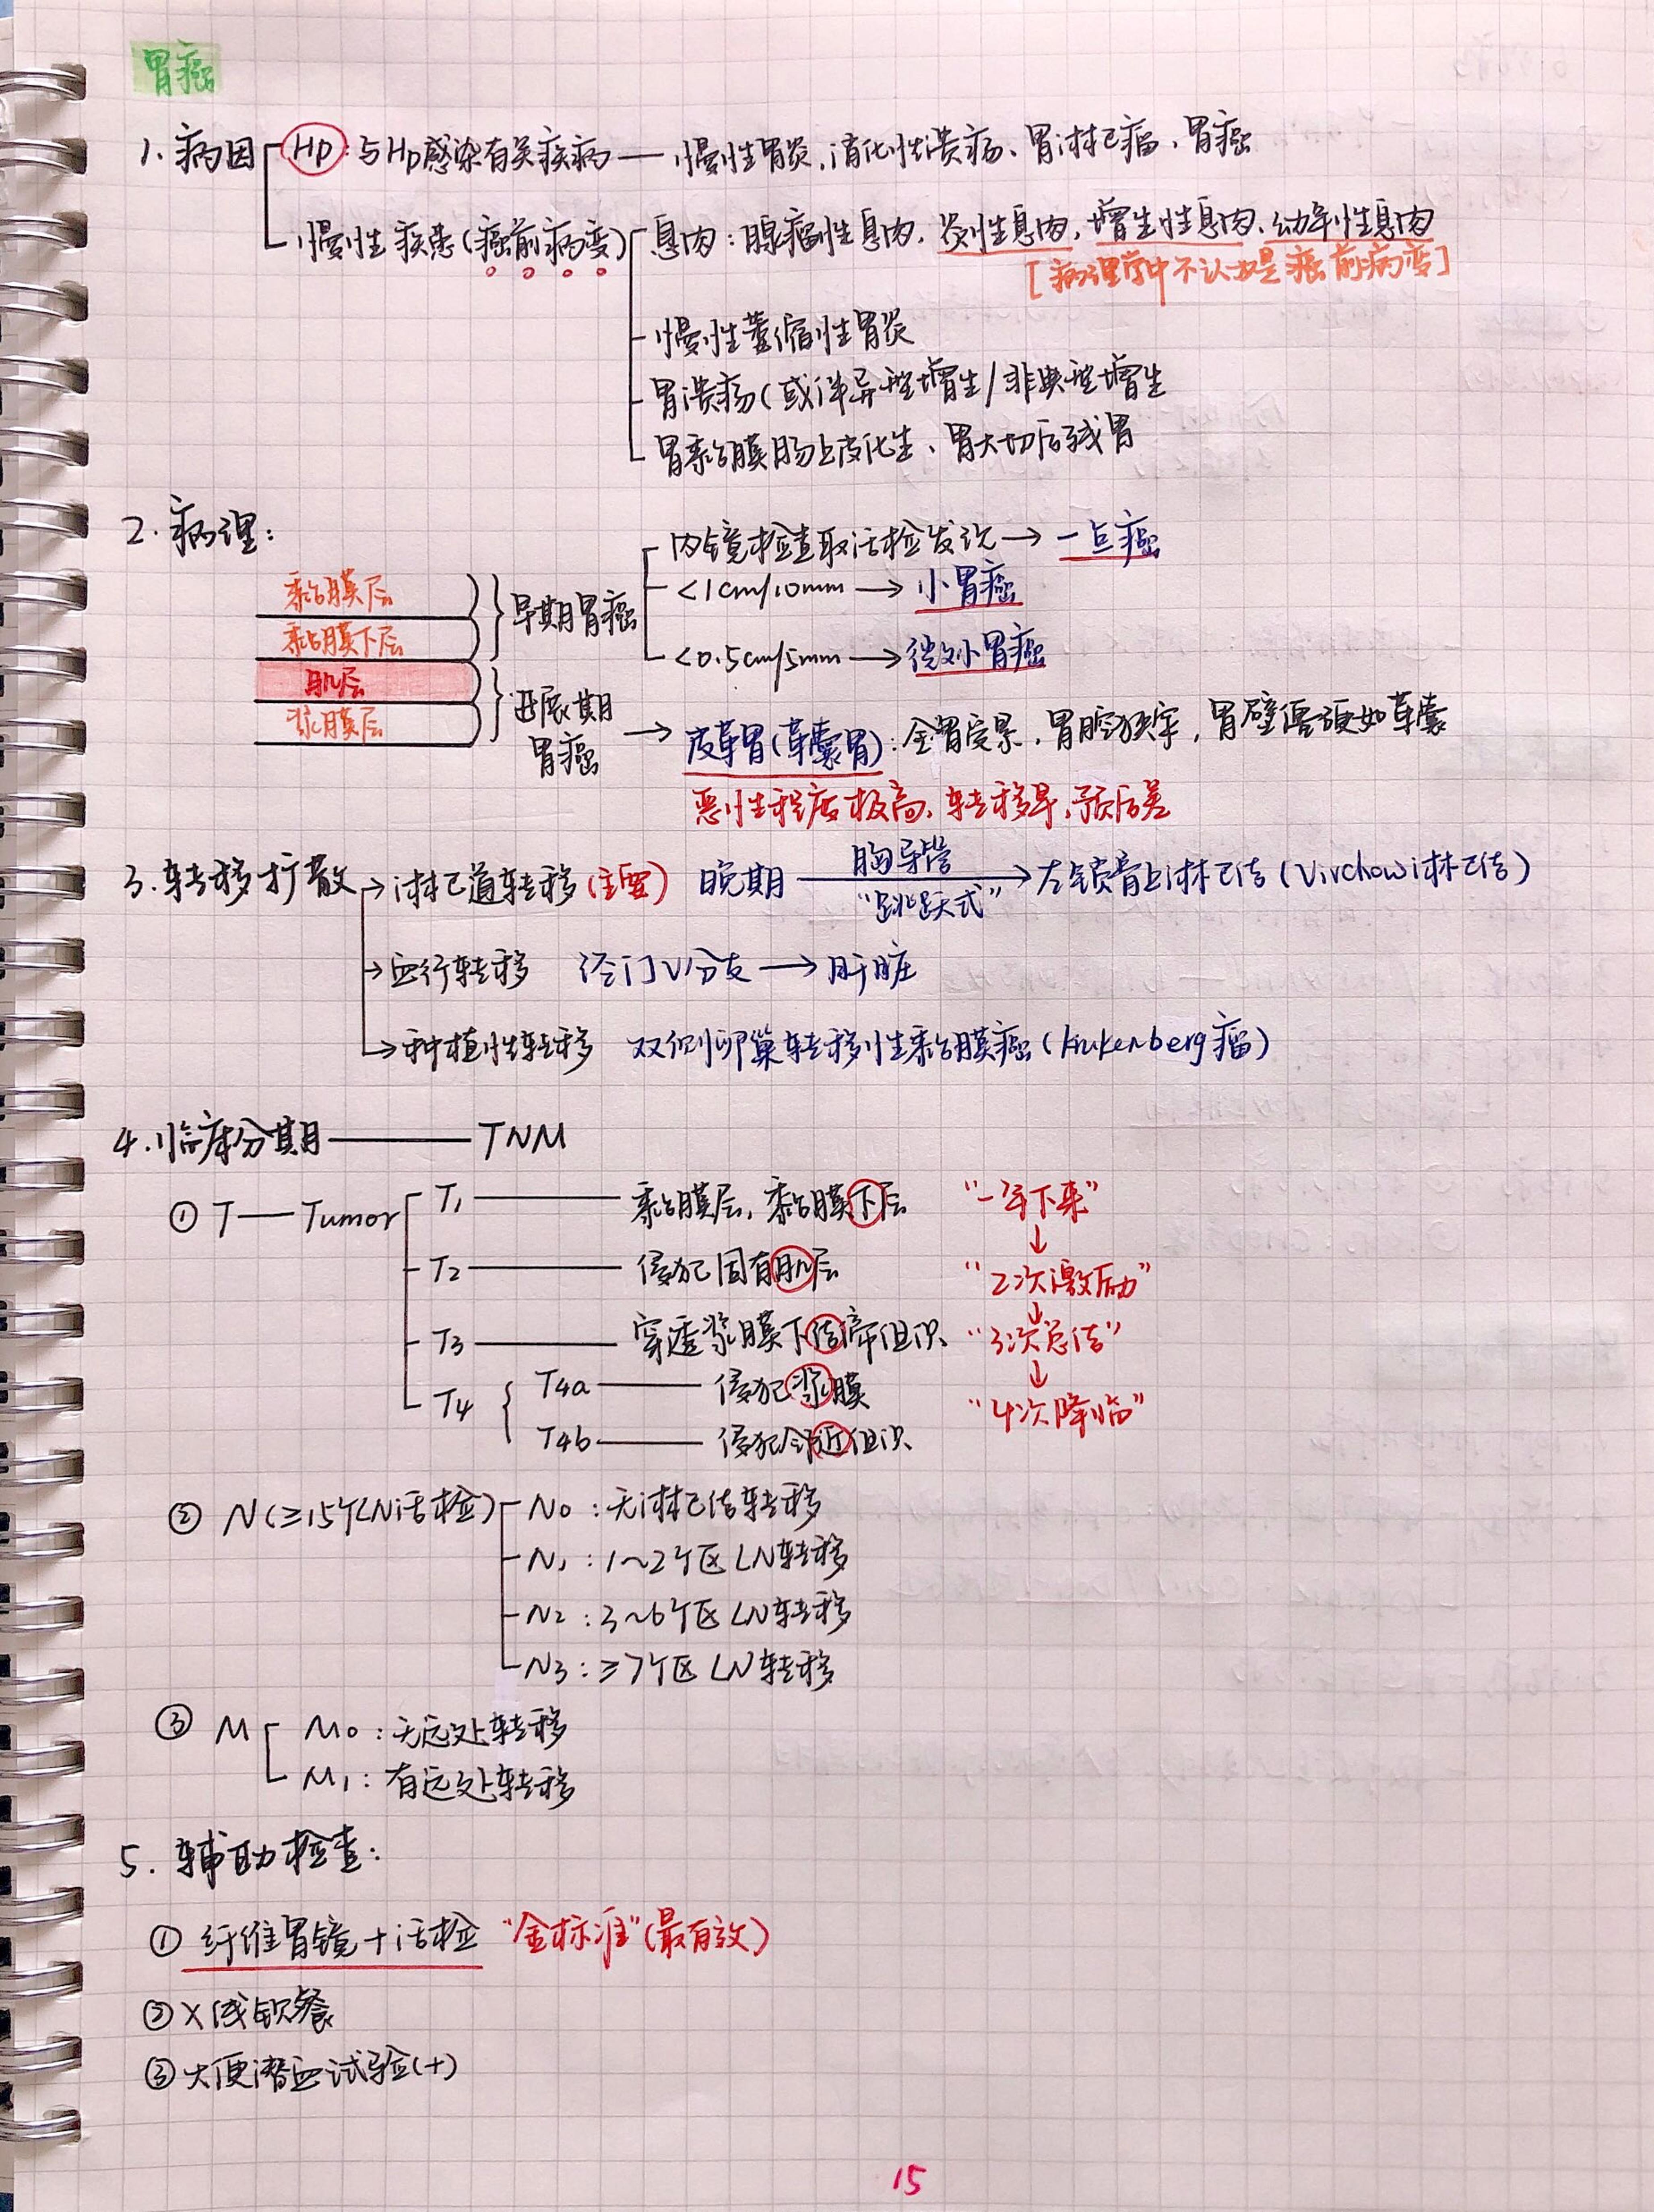 胃癌
1. 病因 Hp：与Hp感染有关疾病—慢性胃炎、消化性溃疡、胃淋巴瘤、胃癌
慢性疾患(癌前病变) 息肉：腺瘤性息肉、炎性息肉、增生性息肉、幼年性息肉
[病理学中不认为是癌前病变]
慢性萎缩性胃炎
胃溃疡(或伴异型增生/非典型增生
胃黏膜肠上皮化生、胃大切后残胃
2. 病理：
内镜检查取活检发现→一点癌
黏膜层
黏膜下层
早期胃癌
<1cm/10mm→小胃癌
<0.5cm/5mm→微小胃癌
肌层
浆膜层
进展期胃癌→皮革胃(革囊胃)：全胃受累，胃腔狭窄，胃壁僵硬如革囊
恶性程度极高、转移早、预后差
3. 转移扩散→淋巴道转移(主要) 晚期 胸导管 "跳跃式"→左锁骨上淋巴结(Virchow淋巴结)
→血行转移 经门V分支→肝脏
→种植性转移 双侧卵巢转移性黏膜癌(krukenberg瘤)
4. 临床分期——TNM
①T—Tumor T1——黏膜层，黏膜下层 "一年下来"
↓
T2——侵犯固有肌层 "2次激励"
↓
T3——穿透浆膜下结缔组织 "3次总结"
↓
T4 T4a——侵犯浆膜 "4次降临"
T4b——侵犯邻近组织
② N(≥15个LN活检) N0：无淋巴结转移
N1：1~2个区LN转移
N2：3~6个区LN转移
N3：≥7个区LN转移
③ M M0：无远处转移
M1：有远处转移
5. 辅助检查：
① 纤维胃镜+活检 "金标准"(最有效)
②X线钡餐
③大便潜血试验(+)
15